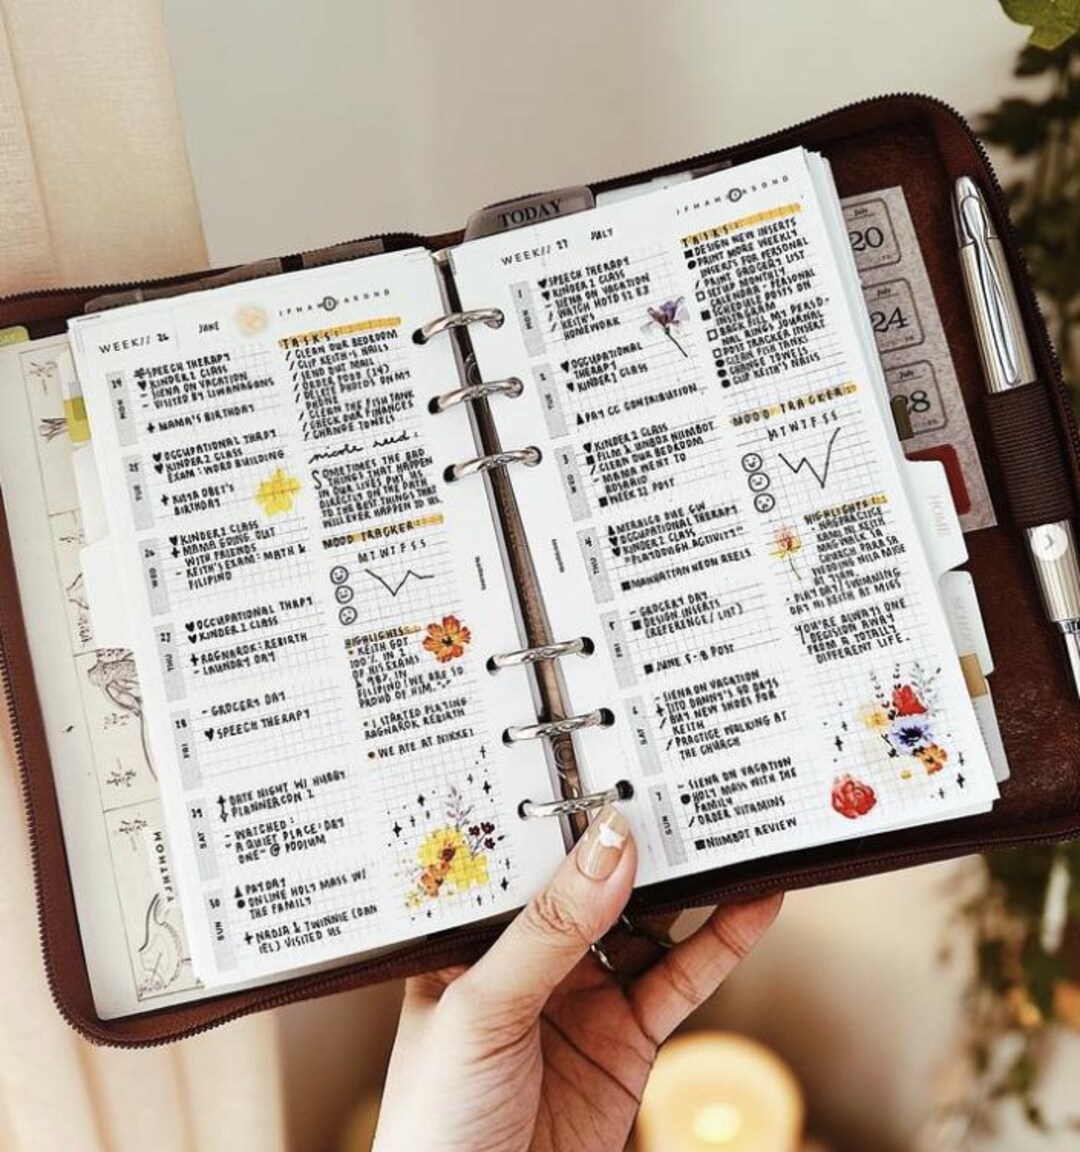 TODAY
WEEK// 26 JUNE
J F M A M J J A S O N D
24 MON
SPEECH THERAPY
KINDER 2 CLASS
- SIENA ON VACATION
- VISITED BY
MAMA'S BIRTHDAY
25 TUE
OCCUPATIONAL THRPY
KINDER 2 CLASS
EXAM: WORD BUILDING
BIRTHDAY
26 WED
KINDER 2 CLASS
MAMA GOING OUT
WITH FRIENDS
- KEITH'S EXAM: MATH &
FILIPINO
27 THU
OCCUPATIONAL THRPY
KINDER 2 CLASS
RAGNAROK: REBIRTH
- LAUNDRY DAY
28 FRI
- GROCERY DAY
SPEECH THERAPY
29 SAT
DATE NIGHT W/ HUBBY
PLANNERCON 2
- WATCHED:
A QUIET PLACE: DAY
ONE" @ PODIUM
30 SUN
PAYDAY
ONLINE HOLY MASS W/
THE FAMILY
NADJA & TWINNIE (DAN
IEL) VISITED US
TASKS:
/ CLEAN OUR BEDROOM
/ CLIP KEITH'S NAILS
/ SEND OUT MAIL
/ ORDER TODO (24)
/ DELETE PHOTOS ON MY
PHONE
/ CLEAN THE FISH TANK
/ CHECK OUR FINANCES
/ CHANGE TOWELS
SOMETIMES THE BAD
THINGS THAT HAPPEN
IN OUR LIVES PUT US
DIRECTLY ON THE PATH
TO THE BEST THINGS THAT
WILL EVER HAPPEN TO US.
MOOD TRACKER:
M T W T F S S
HIGHLIGHTS:
- KEITH GOT
100% IN 2
OF HIS EXAMS
& 98% IN
FILIPINO! WE ARE SO
PROUD OF HIM.
I STARTED PLAYING
RAGNAROK REBIRTH
WE ATE AT NIKKEI
MONTHLY
WEEK// 27 JULY
J F M A M J J A S O N D
1 MON
SPEECH THERAPY
KINDER 2 CLASS
- SIENA ON VACATION
/ WATCH HOTD S2 E3
/ KEITH'S
HOMEWORK
2 TUE
OCCUPATIONAL
THERAPY
KINDER 2 CLASS
PAY CC CONTRIBUTION
3 WED
KINDER 2 CLASS
FILM & UNBOX NIIMBOT
/ CLEAN OUR BEDROOM
- MAMA WENT TO
ROSARIO
WEEK 27 POST
4 THU
MERALCO DUE
OCCUPATIONAL THERAPY
KINDER 2 CLASS
"PLAYDOUGH ACTIVITY"
MANHATTAN NEON REELS
5 FRI
- GROCERY DAY
DESIGN INSERTS
(REFERENCE / LIST)
JUNE 5-8 POST
6 SAT
- SIENA ON VACATION
TITO DANNY'S 40 DAYS
/ BUY NEW SHOES FOR
KEITH
/ PRACTICE WALKING AT
THE CHURCH
7 SUN
- SIENA ON VACATION
HOLY MASS WITH THE
FAMILY
/ ORDER VITAMINS
NIIMBOT REVIEW
TASKS:
DESIGN NEW INSERTS
PRINT MORE WEEKLY
INSERTS FOR PERSONAL
/ PRINT GROCERY LIST
SETUP MONTHLY
CALENDAR - PERSONAL
SCHEDULE POSTS ON
INSTAGRAM
BACK UP MY PERSO-
NAL RINGS JOURNAL
POST TRACKER INSERT
CLEAN FISH TANKS
CHANGE TOWELS
CLIP KEITH'S NAILS
MOOD TRACKER:
M T W T F S S
HIGHLIGHTS:
- NAGPRACTICE
KAMI NI KEITH
MAGWALK SA
CHURCH PARA SA
WEDDING NILA MIGS
AT
- PLAY DAY/SWIMMING
DAY NI KEITH AT MIGS
YOU'RE ALWAYS ONE
DECISION AWAY
FROM A TOTALLY
DIFFERENT LIFE.
July
20
July
24
July
28
HOME